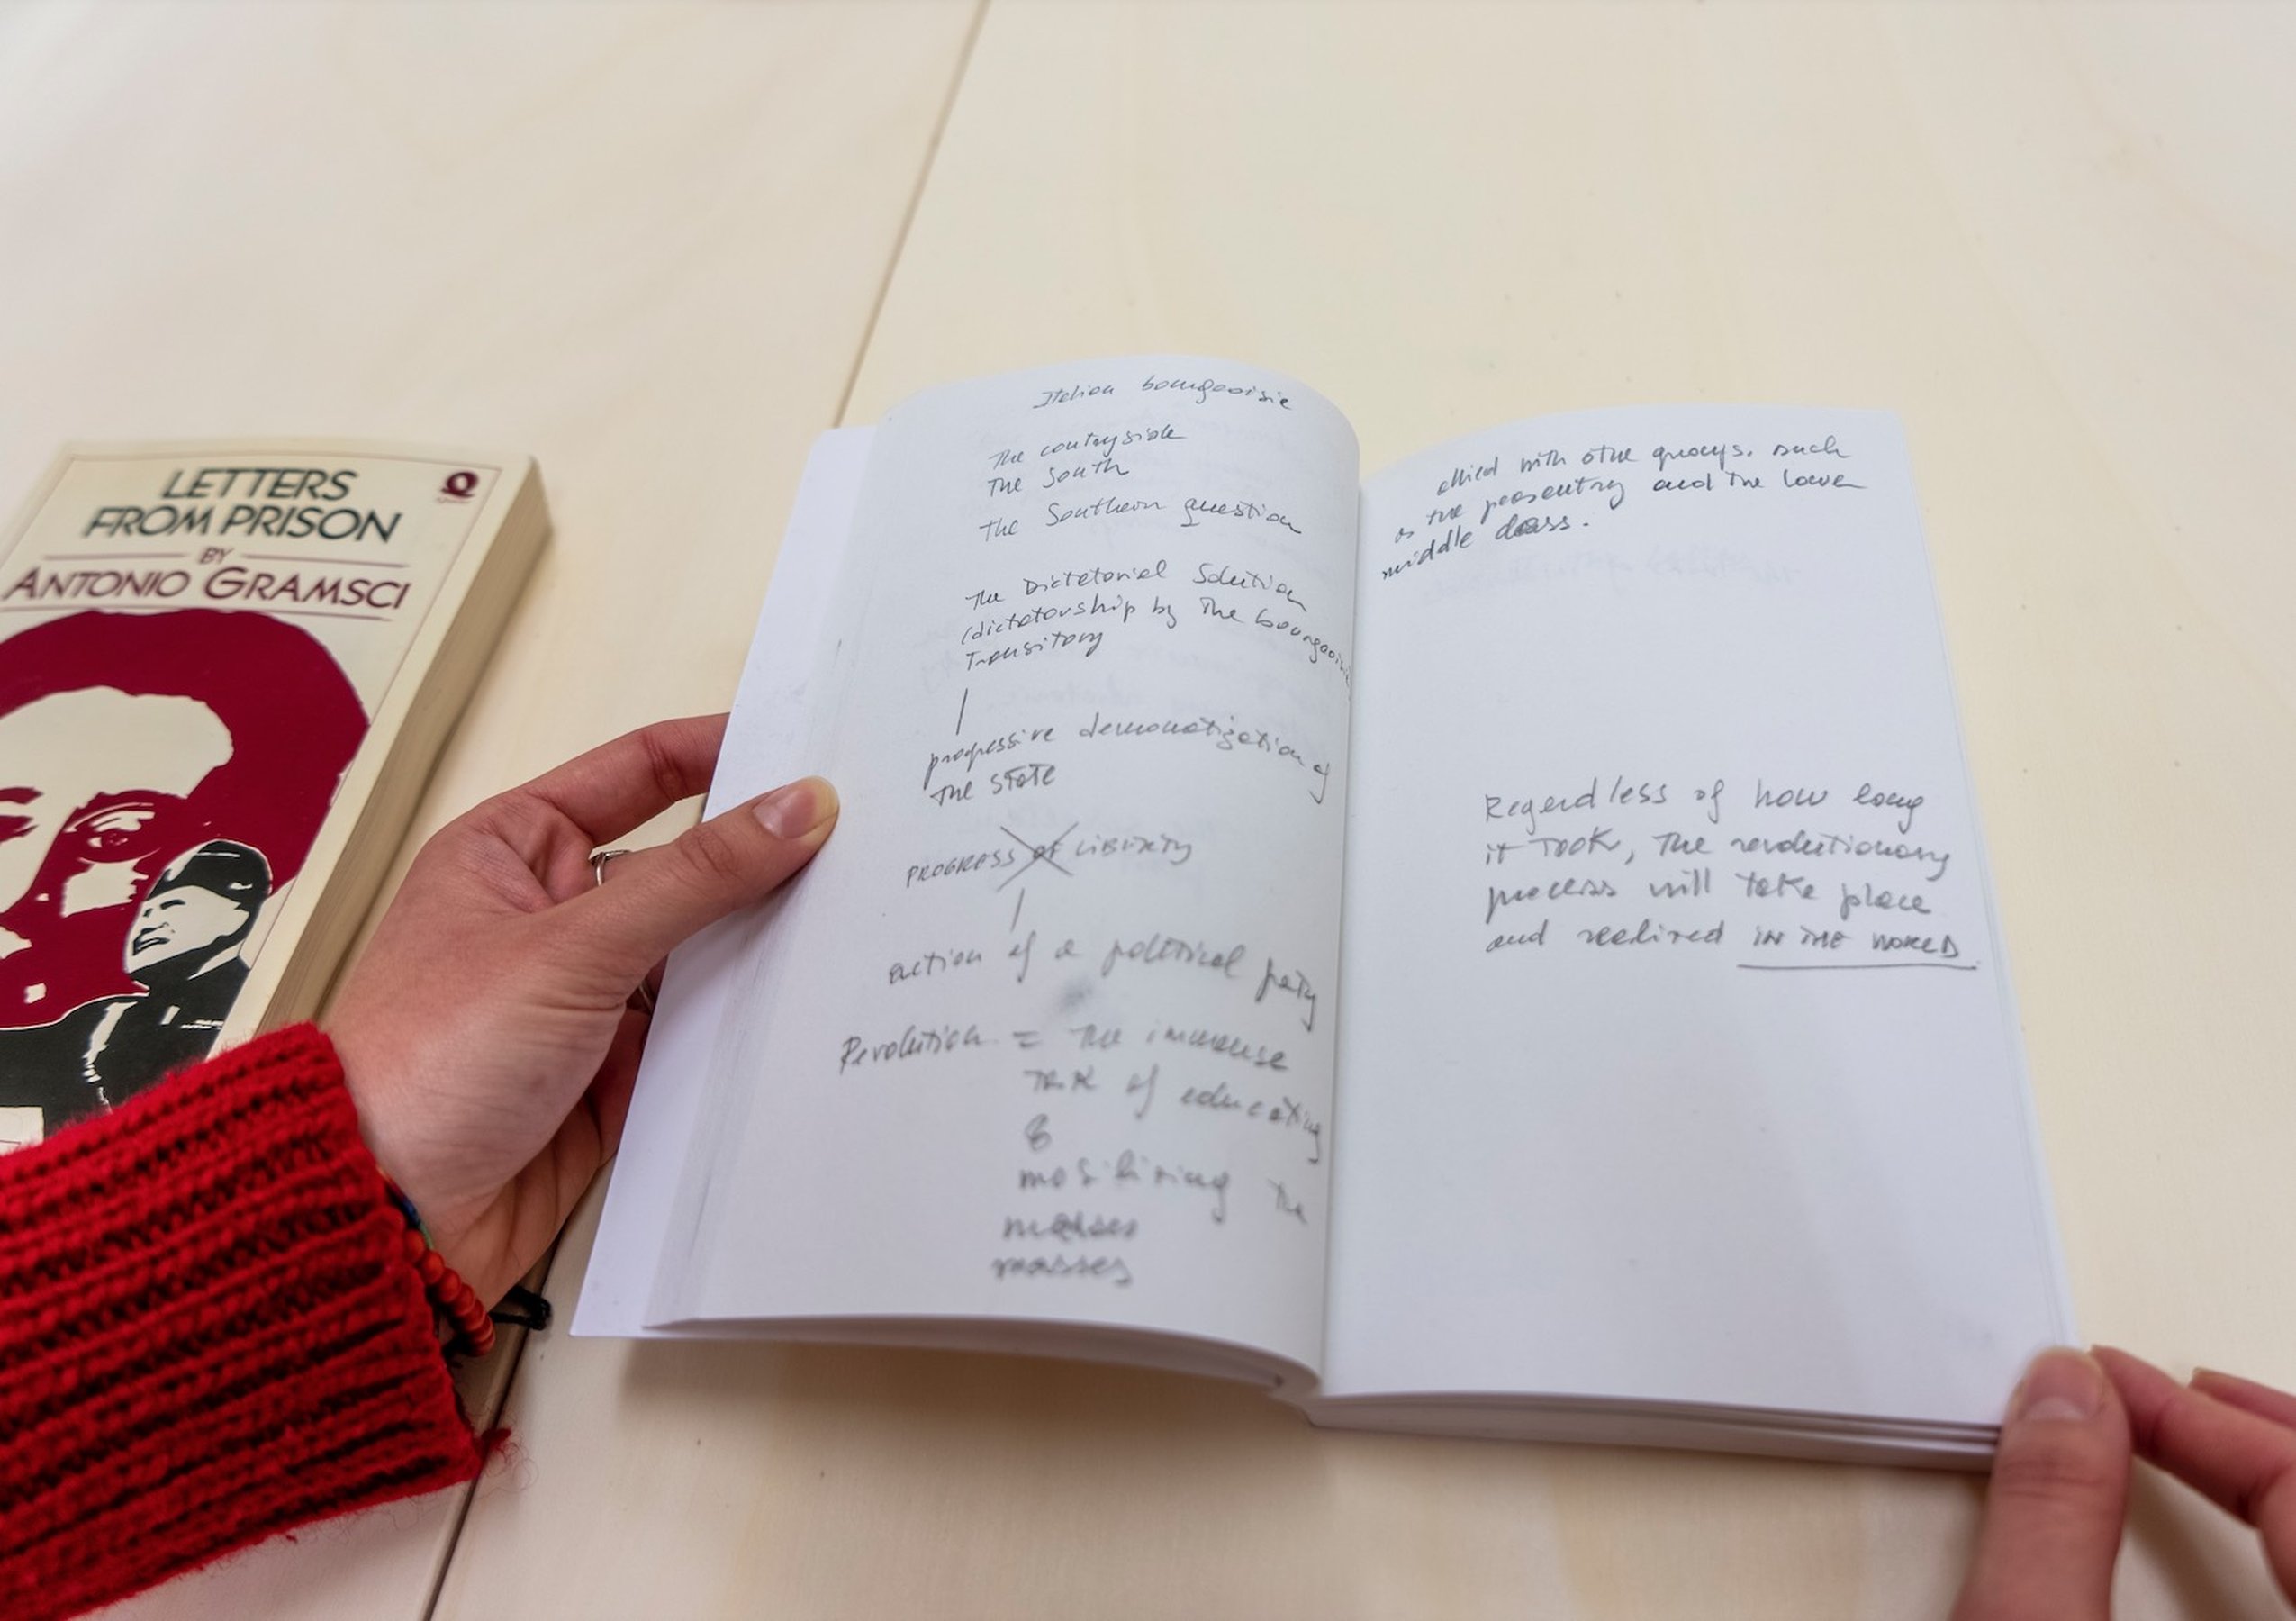 LETTERS
FROM PRISON
BY
ANTONIO GRAMSCI
Italian bourgeoisie
The contryside
The South
The Southern question
The Dictatorial Solution
(dictatorship by the bourgeoisie
Transitory
progressive democratization of
the STATE
PROGRESS OF LIBERTY
action of a political party
Revolution = The immense
task of educating
&
mobilizing the
masses
masses
allied with othe groups. such
as the peasentry and the lower
middle class.
Regardless of how long
it TOOK, The revolutionary
process will take place
and realized IN THE WORLD